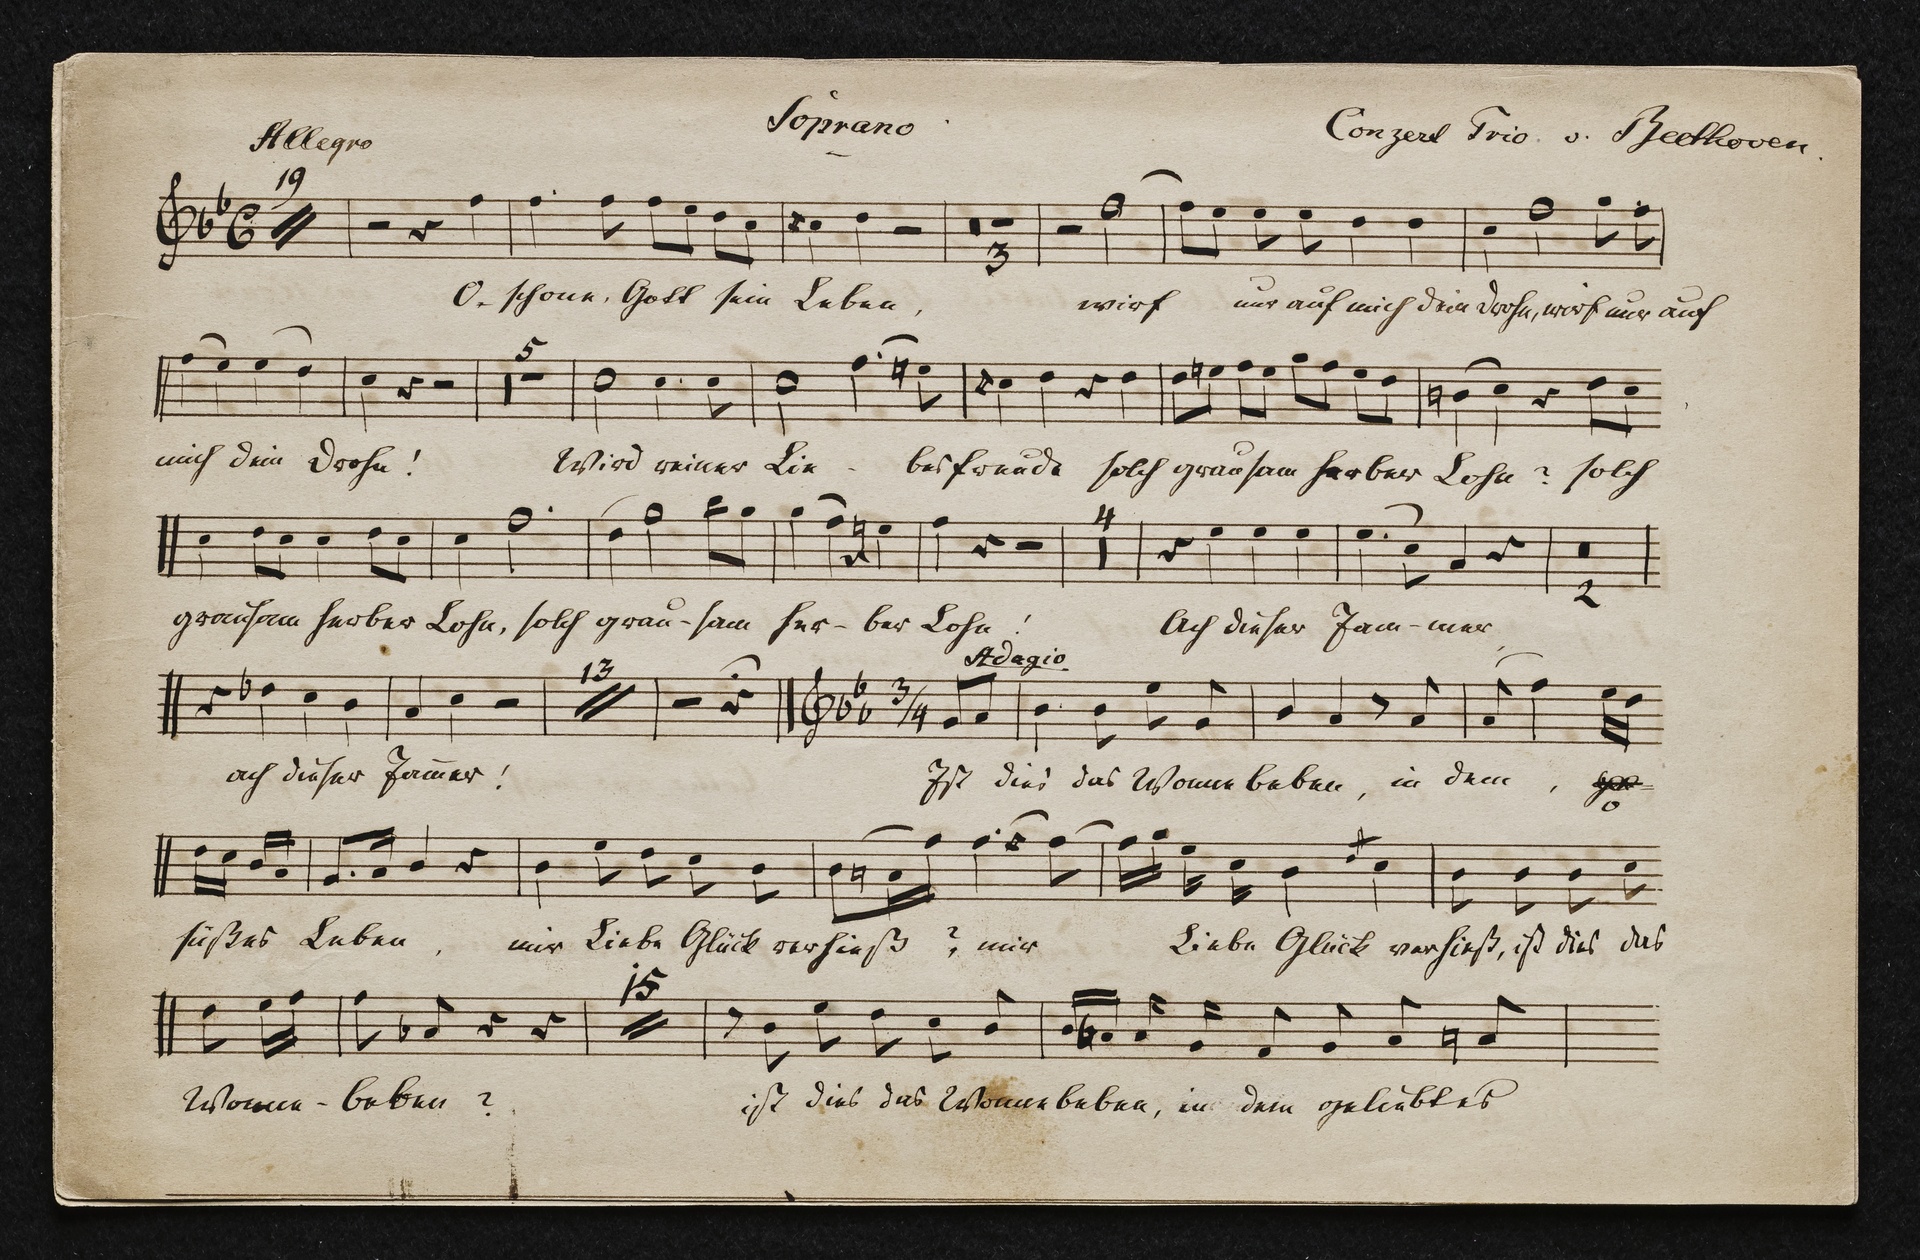 Allegro Soprano Conzert Trio v. Beethoven.
19
3
O, schone, Gott sein Leben, wirf nur auf mich dein Drohn, wirf nur auf
5
mich dein Drohn! Wird reiner Lie - besfreude solch grausam herber Lohn? solch
4
2
grausam herber Lohn, solch grau-sam her-ber Lohn! Ach dieser Jam-mer
Adagio
13 3/4
ach dieser Jam̄er! Ist dies das Wonnebeben, in dem,
süßes Leben, mir Liebe Glück verhieß?, mir Liebe Glück verhieß, ist dies das
15
Wonne-beben? ist dies das Wonnebeben, in dem geliebtes